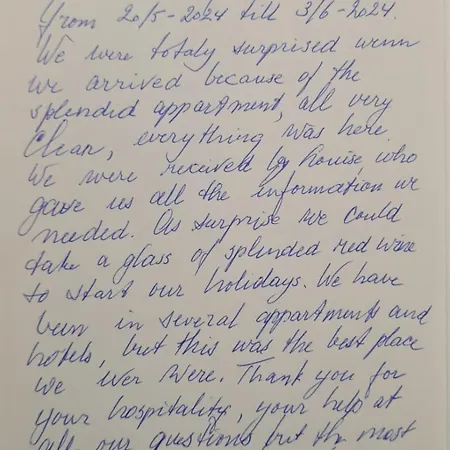 from 20/5-2024 till 3/6-2024.
We were totaly surprised wenn
we arrived because of the
splendid appartment, all very
Clean, everything was here.
We were received by Louise, who
gave us all the information we
needed. As surprise we could
take a glass of splended red wine
to start our holidays. We have
been in several appartments and
hotels, but this was the best place
we wer were. Thank you for
your hospitality, your help at
all our questions but the most